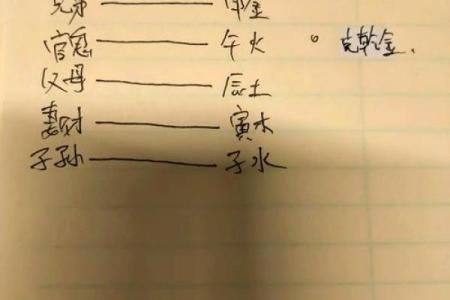 兄弟 —— 申金
官鬼 —— 午火 。 克乾金.
父母 —— 辰土
妻财 —— 寅木
子孙 —— 子水